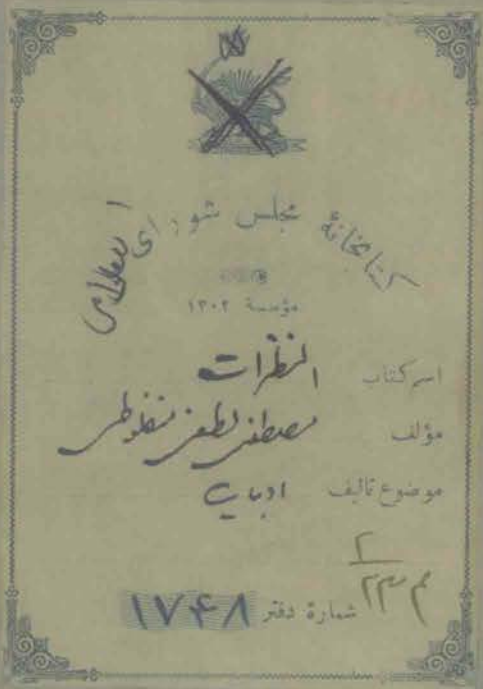 کتابخانهٔ مجلس شورای اسلامی
مؤسسهٔ ۱۳۰۲
اسم کتاب النظرات
مؤلف مصطفی لطفی منفلوطی
موضوع تألیف ادبیات
۲
م ۲۳
شمارهٔ دفتر ۱۷۴۸